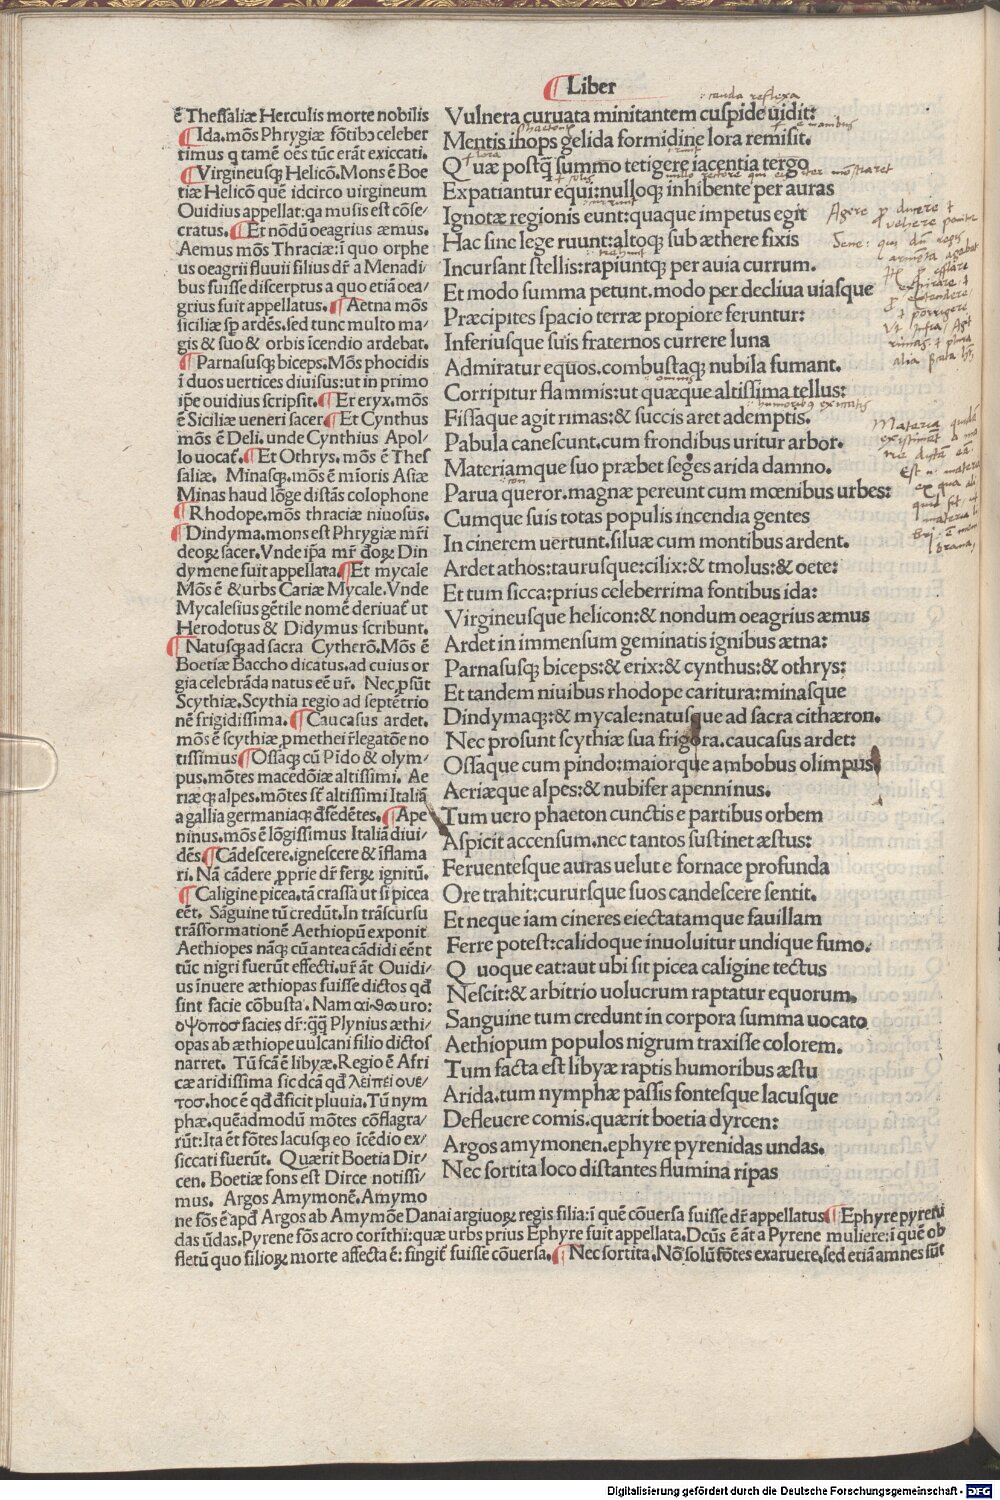 ¶ Liber
ē Thessaliæ Herculis morte nobilis
¶ Ida.mōs Phrygiæ fōtibꝫ celeber
timus q tamē oēs tūc erāt exiccati.
¶ Virgineusqꝫ Helicō.Mons ē Boe
tiæ Helicō quē idcirco uirgineum
Ouidius appellat:qa musis est cōse⸗
cratus.¶ Et nōdū oeagrius æmus.
Aemus mōs Thraciæ:ī quo orphe
us oeagrii fluuii filius dr̄ a Menadi
bus fuisse discerptus a quo etiā oea⸗
grius fuit appellatus.¶ Aetna mōs
siciliæ sp ardēs.sed tunc multo ma⸗
gis & suo & orbis īcendio ardebat.
¶ Parnasusqꝫ biceps.Mōs phocidis
ī duos uertices diuisus:ut in primo
ip̄e ouidius scripsit.¶ Et eryx.mōs
ē Siciliæ ueneri sacer¶ Et Cynthus
mōs ē Deli.unde Cynthius Apol⸗
lo uocat̄.¶ Et Othrys.mōs ē Thes
saliæ. Minasqꝫ.mōs ē mioris Asiæ
Minas haud lōge distās colophone
¶ Rhodope.mōs thraciæ niuosus.
¶ Dindyma.mons est Phrygiæ mr̄i
deoꝝ sacer.Vnde ip̄a mr̄ đoꝝ Din
dymene fuit appellata.¶ Et mycale
Mōs ē & urbs Cariæ Mycale.Vnde
Mycalesius gētile nomē deriuat̄ ut
Herodotus & Didymus scribunt.
¶ Natusqꝫ ad sacra Cytherō.Mōs ē
Boetiæ Baccho dicatus.ad cuius or
gia celebrāda natus eē ur̄. Nec ꝓsūt
Scythiæ.Scythia regio ad septētrio
nē frigidissima.¶ Caucasus ardet.
mōs ē scythiæ ꝓmethei r̄legatōe no
tissimus¶ Ossaqꝫ cū Pīdo & olym⸗
pus.mōtes macedōiæ altissimi. Ae
riæqꝫ alpes.mōtes st̄ altissimi Italiā
a gallia germaniaqꝫ đfedētes.¶ Ape
ninus.mōs ē lōgissimus Italiā diui⸗
dēs.¶ Cādescere.ignescere & īflama
ri. Nā cādere ꝓprie dr̄ ferꝝ ignitū.
¶ Caligine picea.tā crassa ut si picea
eēt. Sāguine tū credūt.In trāscursu
trāsformationē Aethiopū exponit
Aethiopes nāqꝫ cū antea cādidi eēnt
tūc nigri fuerūt effecti.ur̄ āt Ouidi⸗
us īnuere æthiopas fuisse dictos qđ
sint facie cōbusta.Nam αιθω uro:
οψοποσ facies dr̄:q̄q̄ Plynius æthi⸗
opas ab æthiope uulcani filio dictos
narret. Tū fcā ē libyæ.Regio ē Afri
cæ aridissima sic dcā qđ λειπει ουε⸗
τοσ.hoc ē qđ đficit pluuia.Tū nym
phæ.quēadmodū mōtes cōflagra⸗
rūt:Ita ēt fōtes lacusqꝫ eo īcēdio ex⸗
siccati fuerūt. Quærit Boetia Dir⸗
cen. Boetiæ fons est Dirce notissi⸗
mus. Argos Amymonē.Amymo
Vulnera curuata minitantem cuspide uidit:
Mentis inops gelida formidine lora remisit.
Quæ postq̄ summo tetigere iacentia tergo
Expatiantur equi:nulloqꝫ inhibente per auras
Ignotæ regionis eunt:quaque impetus egit
Hac sine lege ruunt:altoqꝫ sub æthere fixis
Incursant stellis:rapiuntqꝫ per auia currum.
Et modo summa petunt.modo per decliua uiasque
Præcipites spacio terræ propiore feruntur:
Inferiusque suis fraternos currere luna
Admiratur equos.combustaqꝫ nubila fumant.
Corripitur flammis:ut quæque altissima tellus:
Fissaque agit rimas:& succis aret ademptis.
Pabula canescunt.cum frondibus uritur arbor.
Materiamque suo præbet seges arida damno.
Parua queror.magnæ pereunt cum mœnibus urbes:
Cumque suis totas populis incendia gentes
In cinerem uertunt.siluæ cum montibus ardent.
Ardet athos:taurusque:cilix:& tmolus:& oete:
Et tum sicca:prius celeberrima fontibus ida:
Virgineusque helicon:& nondum oeagrius æmus
Ardet in immensum geminatis ignibus ætna:
Parnasusqꝫ biceps:& erix:& cynthus:& othrys:
Et tandem niuibus rhodope caritura:minasque
Dindymaqꝫ:& mycale:natusque ad sacra cithæron.
Nec prosunt scythiæ sua frigora.caucasus ardet:
Ossaque cum pindo:maiorque ambobus olimpus.
Aeriæque alpes:& nubifer apenninus.
Tum uero phaeton cunctis e partibus orbem
Aspicit accensum.nec tantos sustinet æstus:
Feruentesque auras uelut e fornace profunda
Ore trahit:cururſque suos candescere sentit.
Et neque iam cineres eiectatamque fauillam
Ferre potest:calidoque inuoluitur undique fumo.
Quoque eat:aut ubi sit picea caligine tectus
Nescit:& arbitrio uolucrum raptatur equorum.
Sanguine tum credunt in corpora summa uocato
Aethiopum populos nigrum traxisse colorem.
Tum facta est libyæ raptis humoribus æstu
Arida.tum nymphæ passis fontesque lacusque
Defleuere comis.quærit boetia dyrcen:
Argos amymonen.ephyre pyrenidas undas.
Nec sortita loco distantes flumina ripas
ne fōs ē apđ Argos ab Amymōe Danai argiuoꝝ regis filia:ī quē cōuersa fuisse dr̄ appellatus¶ Ephyre pyreni
das ūdas.Pyrene fōs acro corīthi:quæ urbs prius Ephyre fuit appellata.Dcūs ē āt a Pyrene muliere:ī quē ob
fletū quo filioꝝ morte affecta ē: fingit̄ fuisse cōuersa.¶ Nec sortita.Nō solū fōtes exaruere.sed etiā amnes sūt
cauda reflexa
Agere ꝓ ducere